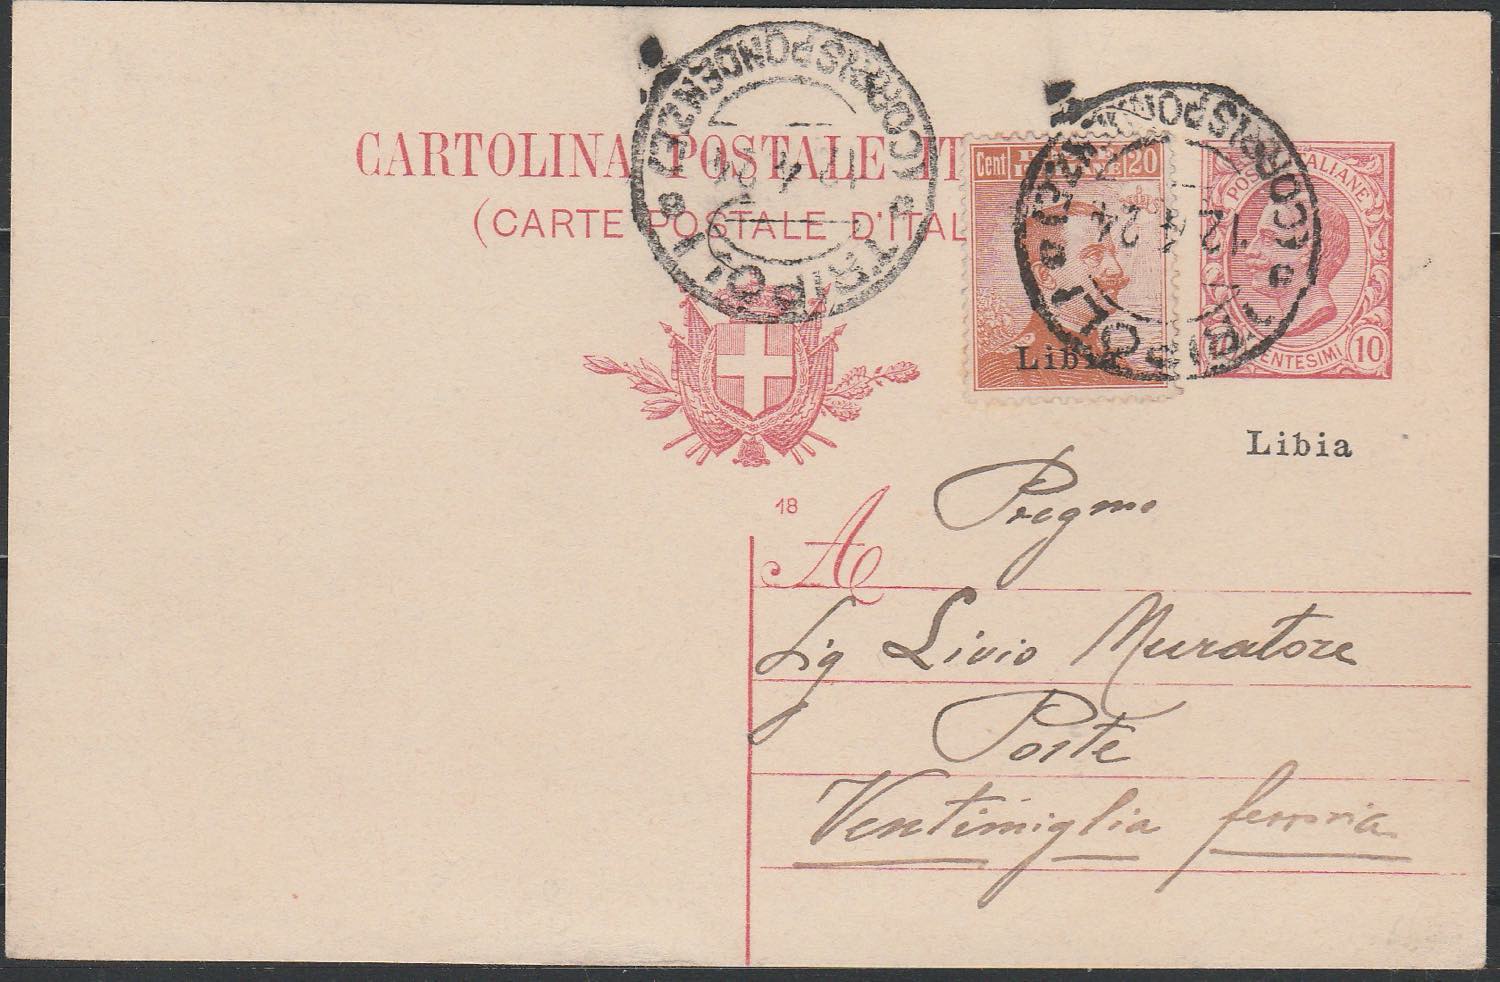 CARTOLINA POSTALE IT
(CARTE POSTALE D'ITAL
Cent 20
Libia
POSTE ITALIANE
CENTESIMI 10
Libia
TRIPOLI (CORRISPONDENZE)
12 4 24
TRIPOLI (CORRISPONDENZE)
12 4 24
18
A Pregmo
Sig Livio Muratore
Poste
Ventimiglia ferrovia